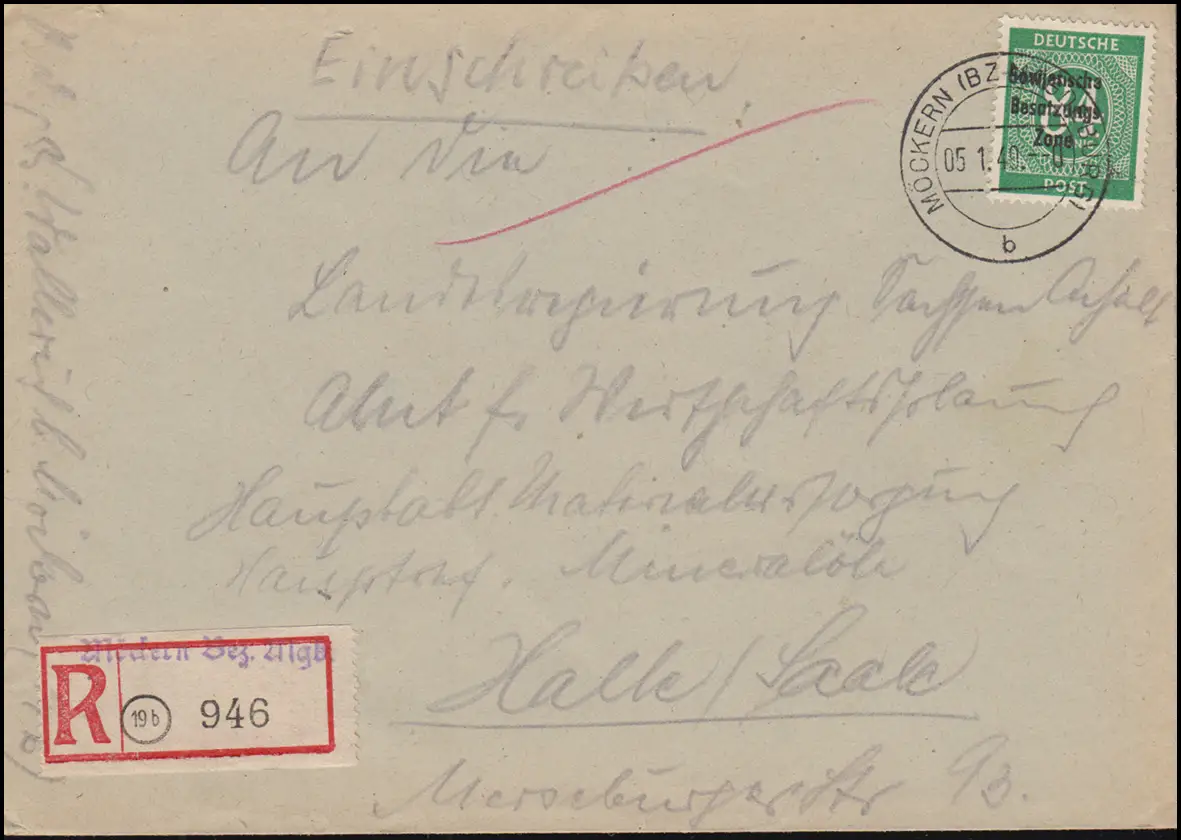 Einschreiben.
An die
Landesregierung Sachsen Anhalt
Amt f. Wirtschaftsplanung
Hauptabt. Materialversorgung
Hauptref. Mineralöle
Halle/Saale
Merseburger Str 93.
DEUTSCHE
84
POST
Sowjetische
Besatzungs
Zone
MÖCKERN (BZ
05.1.49
b
Möckern Bez. Mgb.
R 19b 946